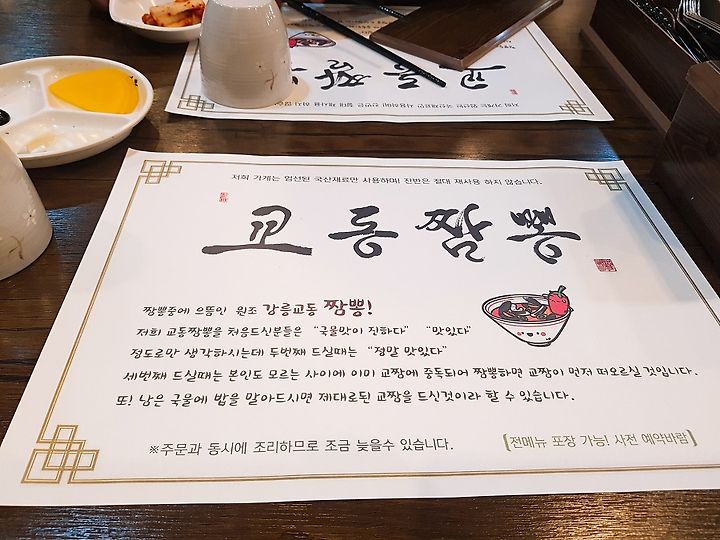 저희 가게는 엄선된 국산재료만 사용하며! 잔반은 절대 재사용 하지 않습니다.
교동짬뽕
짬뽕중에 으뜸인 원조 강릉교동 짬뽕!
저희 교동짬뽕을 처음드신분들은 “국물맛이 진하다” “맛있다”
정도로만 생각하시는데 두번째 드실때는 “정말 맛있다”
세번째 드실때는 본인도 모르는 사이에 이미 교짬에 중독되어 짬뽕하면 교짬이 먼저 떠오르실 것입니다.
또! 남은 국물에 밥을 말아드시면 제대로된 교짬을 드신것이라 할 수 있습니다.
※주문과 동시에 조리하므로 조금 늦을수 있습니다.
[전메뉴 포장 가능! 사전 예약바람]